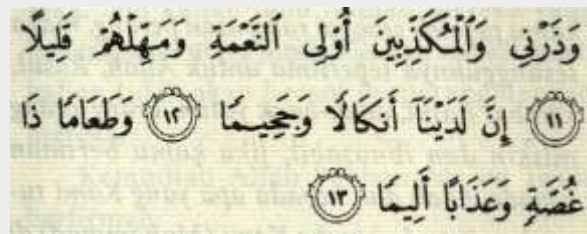 وَذَرْنِى وَٱلْمُكَذِّبِينَ أُو۟لِى ٱلنَّعْمَةِ وَمَهِّلْهُمْ قَلِيلًا
١١ إِنَّ لَدَيْنَآ أَنكَالًا وَجَحِيمًا ١٢ وَطَعَامًا ذَا
غُصَّةٍ وَعَذَابًا أَلِيمًا ١٣